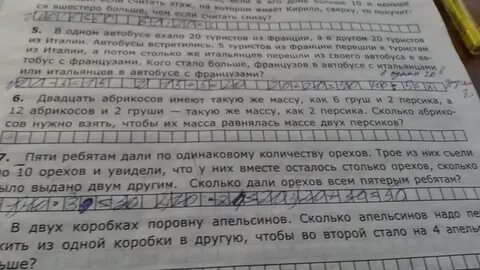 ся вшестеро больше, чем если считать снизу?
5. В одном автобусе ехало 20 туристов из Франции, а в другом 20 туристов
из Италии. Автобусы встретились. 5 туристов из Франции перешли к туристам
из Италии, а потом столько же итальянцев перешли из своего автобуса в ав-
тобус с французами. Кого стало больше, французов в автобусе с итальянцами
или итальянцев в автобусе с французами?
6. Двадцать абрикосов имеют такую же массу, как 6 груш и 2 персика, а
12 абрикосов и 2 груши — такую же массу, как 2 персика. Сколько абрико-
сов нужно взять, чтобы их масса равнялась массе двух персиков?
7. Пяти ребятам дали по одинаковому количеству орехов. Трое из них съели
по 10 орехов и увидели, что у них вместе осталось столько орехов, сколько
было выдано двум другим. Сколько дали орехов всем пятерым ребятам?
В двух коробках поровну апельсинов. Сколько апельсинов надо пе
жить из одной коробки в другую, чтобы во второй стало на 4 апель
ьше?